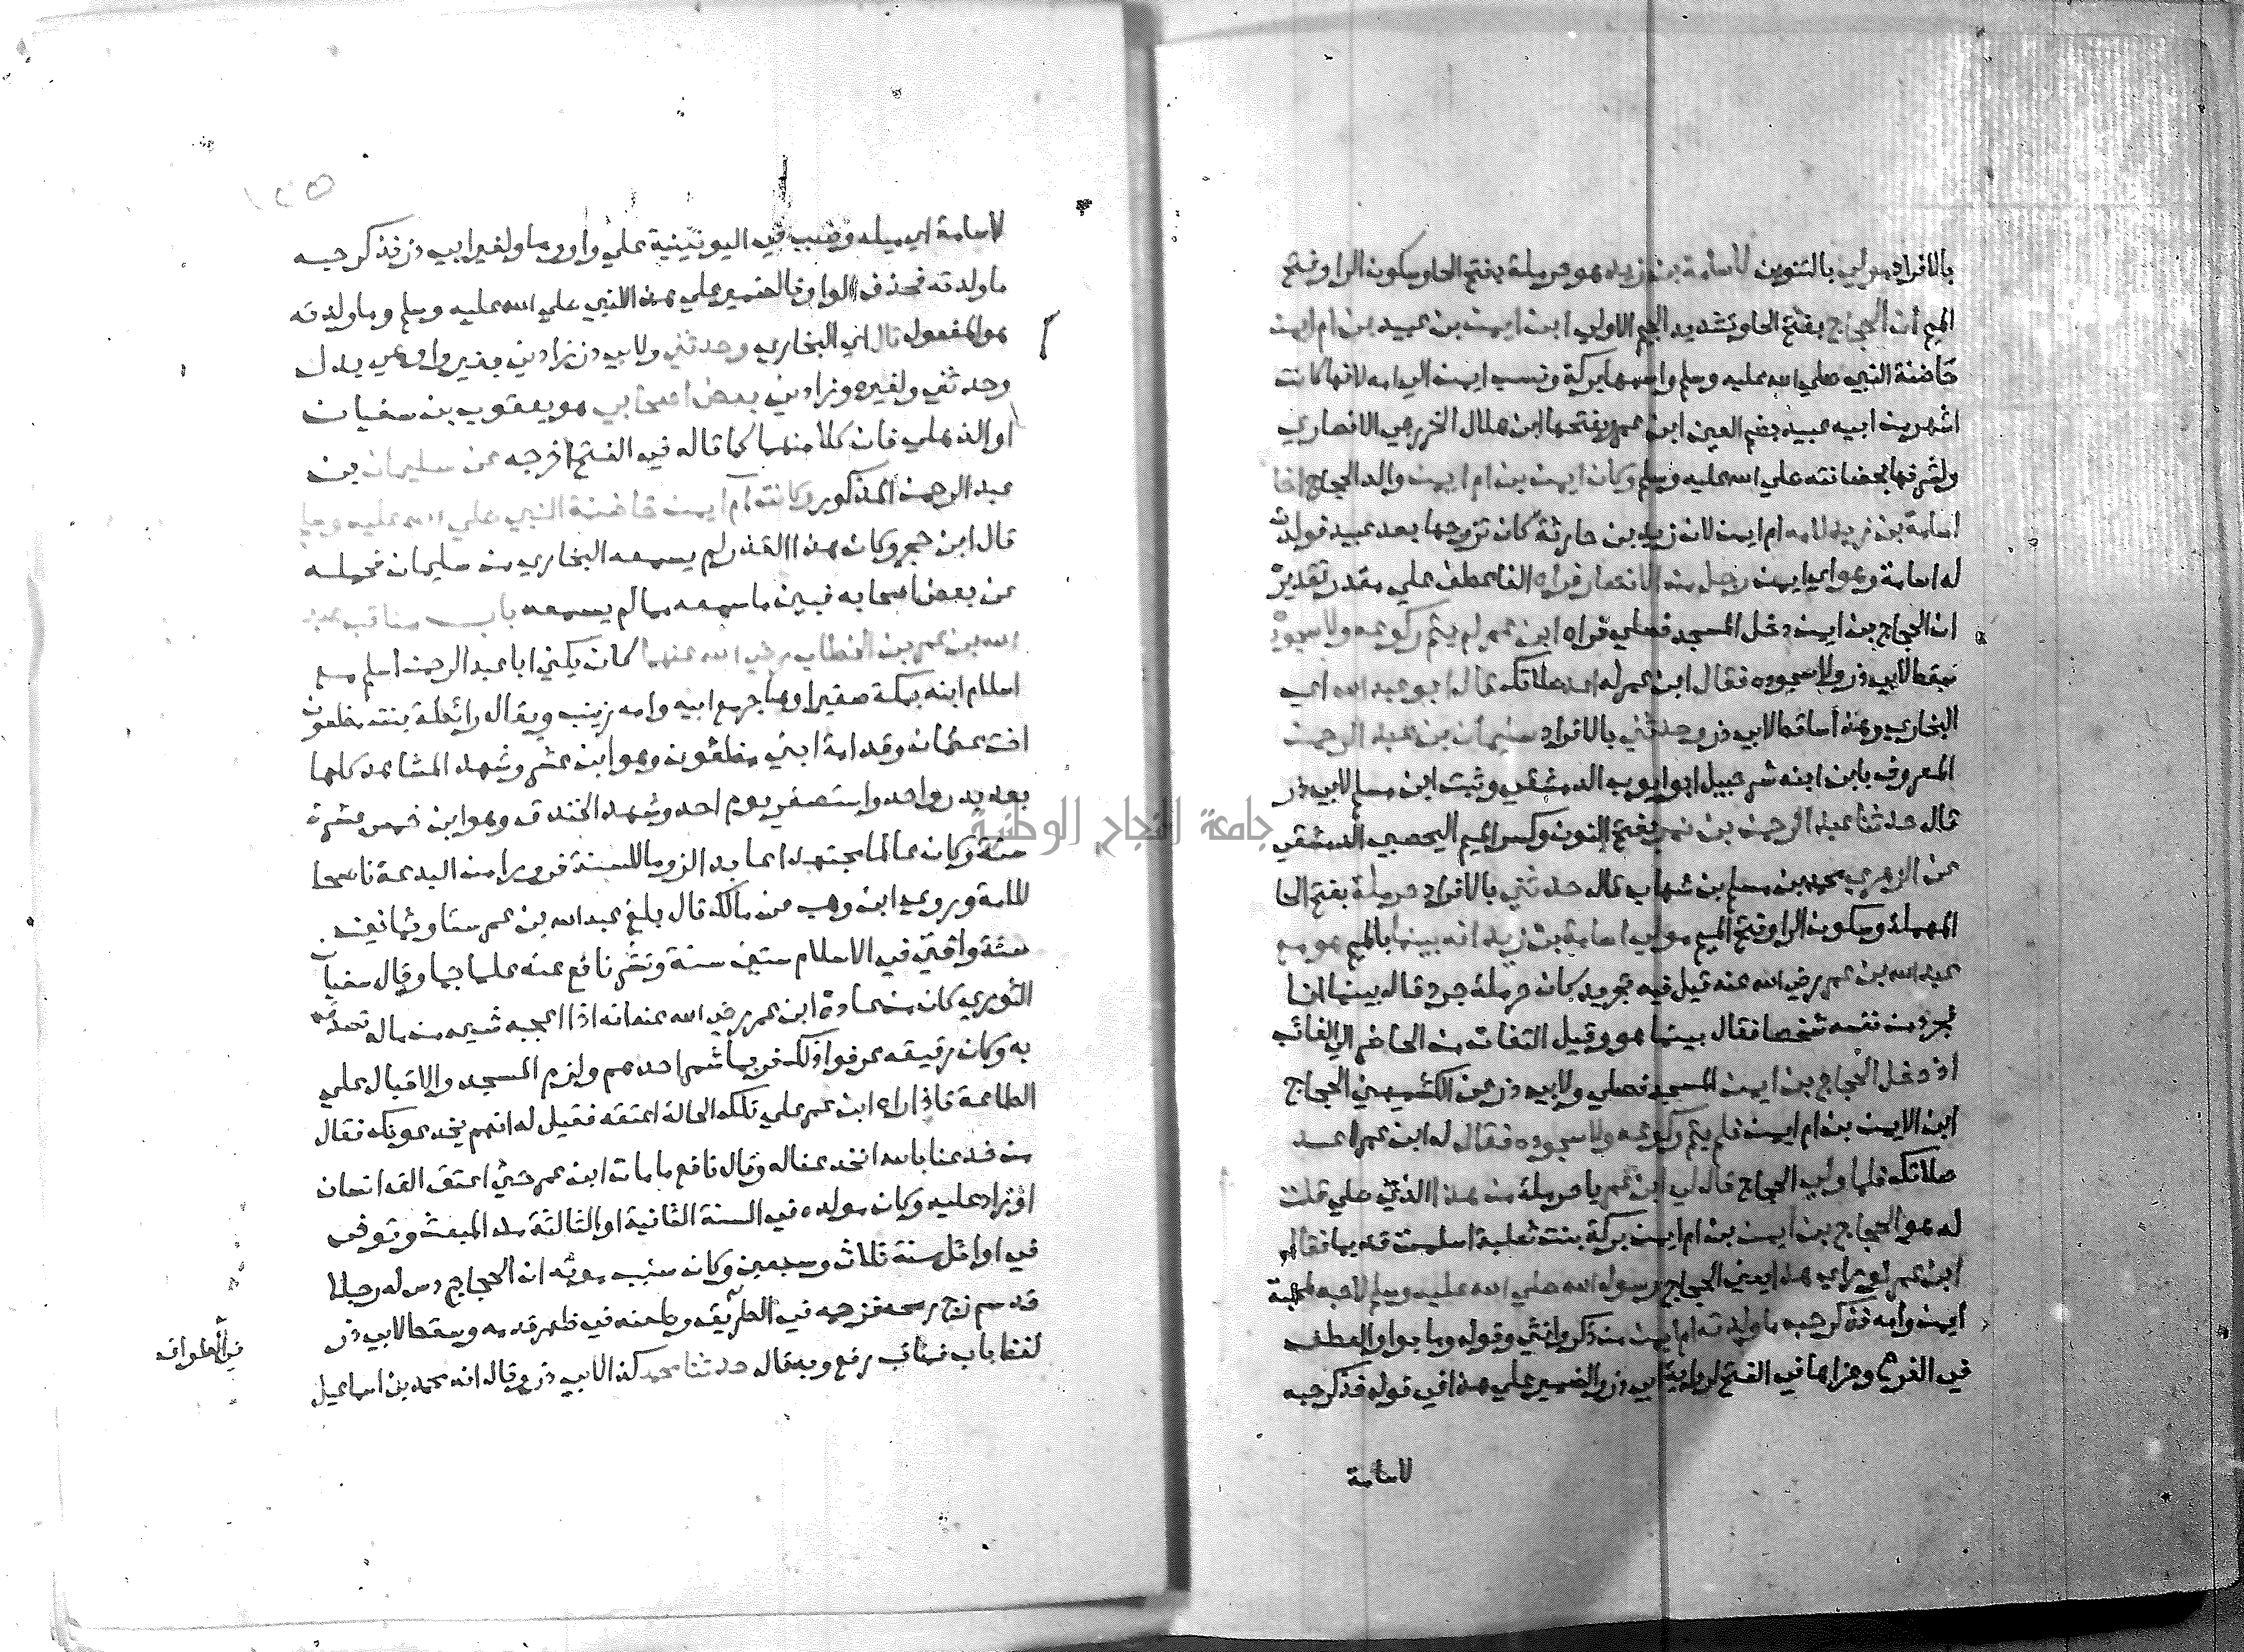 بالافراد مولي بالتنوين لاسامة بن زيد هو حرملة بفتح الحا وسكون الرا وفتح
الميم أن الحجاج بفتح الحا وتشديد الجيم الاولي ابن ايمن بن عبيد بن ام ايمن
حاضنة النبي صلي الله عليه وسلم واسمها بركة ونسب ايمن الي امه لانها كانت
اشهر من ابيه عبيد بضم العين ابن عمر بفتحها ابن هلال الخزرجي الانصاري
ولشرفها بحضانته صلي الله عليه وسلم وكان ايمن بن ام ايمن والد الحجاج اخا
اسامة بن زيد لامه ام ايمن لان زيد بن حارثة كان تزوجها بعد عبيد فولدت
له اسامة وهو اي ايمن رجل من الانصار فراه الفا عطف علي مقدر تقديره
ان الحجاج بن ايمن دخل المسجد فصلي فراه ابن عمر لم يتم ركوعه ولا سجوده
سقط لابي ذر ولا سجوده فقال ابن عمر له اعد صلاتك قال ابو عبد الله اي
البخاري وهذا ساقط لابي ذر وحدثني بالافراد سليمان بن عبد الرحمن
المعروف بابن ابنه شرحبيل ابو ايوب الدمشقي وثبت ابن مسلم لابي ذر
قال حدثنا عبد الرحمن بن نمر بفتح النون وكسر الميم اليحصبي الدمشقي
عن الزهري محمد بن مسلم بن شهاب قال حدثني بالافراد حرملة بفتح الحا
المهملة وسكون الرا وفتح الميم مولي اسامة بن زيد انه بينما بالميم هو مع
عبد الله بن عمر رضي الله عنه قيل فيه تجريد كان حرملة جرد قال بينما انا
فجرد من نفسه شخصا فقال بينما هو وقيل التفات من الحاضر الي الغائب
اذ دخل الحجاج بن ايمن المسجد فصلي ولابي ذر عن الكشميهني الحجاج
ابن الايمن بن ام ايمن فلم يتم ركوعه ولا سجوده فقال له ابن عمر اعد
صلاتك فلما ولي الحجاج قال لي ابن عمر يا حرملة من هذا الذي صلي قلت
له هو الحجاج بن ايمن بن ام ايمن بركة بنت ثعلبة اسلمت قديما فقال
ابن عمر لو راي هذا يعني الحجاج رسول الله صلي الله عليه وسلم لاحبه لمحبة
ايمن وامه فذكر حبه ما ولدته ام ايمن من ذكر وانثي وقوله وما بواو العطف
في الفرع وعزاها في الفتح لرواية ابي ذر والضمير علي هذا في قوله فذكر حبه
لاسامة
١٢٥
لاسامة اي ميله وضبب في اليونينية علي واو وما ولغير ابي ذر فذكر حبه
ما ولدته فحذف الواو فالضمير علي هذا للنبي صلي الله عليه وسلم وما ولدته
هو المفعول قال اي البخاري وحدثني ولابي ذر زادني بغير واو عن بدل
وحدثني ولغيره وزادني بعض اصحابي هو يعقوب بن سفيان
او الذهلي فان كلا منهما كما قاله في الفتح اخرجه عن سليمان بن
عبد الرحمن المذكور وكانت ام ايمن حاضنة النبي صلي الله عليه وسلم
قال ابن حجر وكان هذا القدر لم يسمعه البخاري من سليمان فحمله
عن بعض اصحابه فبين ما سمعه مما لم يسمعه باب مناقب عبد
الله بن عمر بن الخطاب رضي الله عنهما كان يكني ابا عبد الرحمن اسلم مع
اسلام ابنه بمكة صغيرا وهاجر مع ابيه وامه زينب ويقال رائطة بنت مظعون
اخت عثمان وقدامة ابني مظعون وهو ابن عشر وشهد المشاهد كلها
بعد بدر واحد واستصغر يوم احد وشهد الخندق وهو ابن خمس عشرة
سنة وكان عالما مجتهدا عابدا لزوما للسنة فرورا من البدعة ناصحا
للامة وروي ابن وهب عن مالك قال بلغ عبد الله بن عمر ستا وثمانين
سنة وافتي في الاسلام ستين سنة ونشر نافع عنه علما جما وقال سفيان
الثوري كان من عادة ابن عمر رضي الله عنه انه اذا اعجبه شيء من ماله تصدق
به وكان رقيقه عرفوا ذلك فربما شمر احدهم ولزم المسجد والاقبال علي
الطاعة فاذا راه ابن عمر علي تلك الحالة اعتقه فقيل له انهم يخدعونك فقال
من خدعنا بالله انخدعنا له وقال نافع ما مات ابن عمر حتي اعتق الف انسان
او زاد عليه وكان مولده في السنة الثانية او الثالثة من المبعث وتوفي
في اوائل سنة ثلاث وسبعين وكان سبب موته ان الحجاج دس له رجلا
قد سم زج رمحه فزحمه في الطريق وطعنه في ظهر قدمه وسقط لابي ذر
في الطواف
لفظ باب فمناقب رفع وبه قال حدثنا محمد كذا لابي ذر وقال انه محمد بن اسماعيل
جامعة النجاح الوطنية